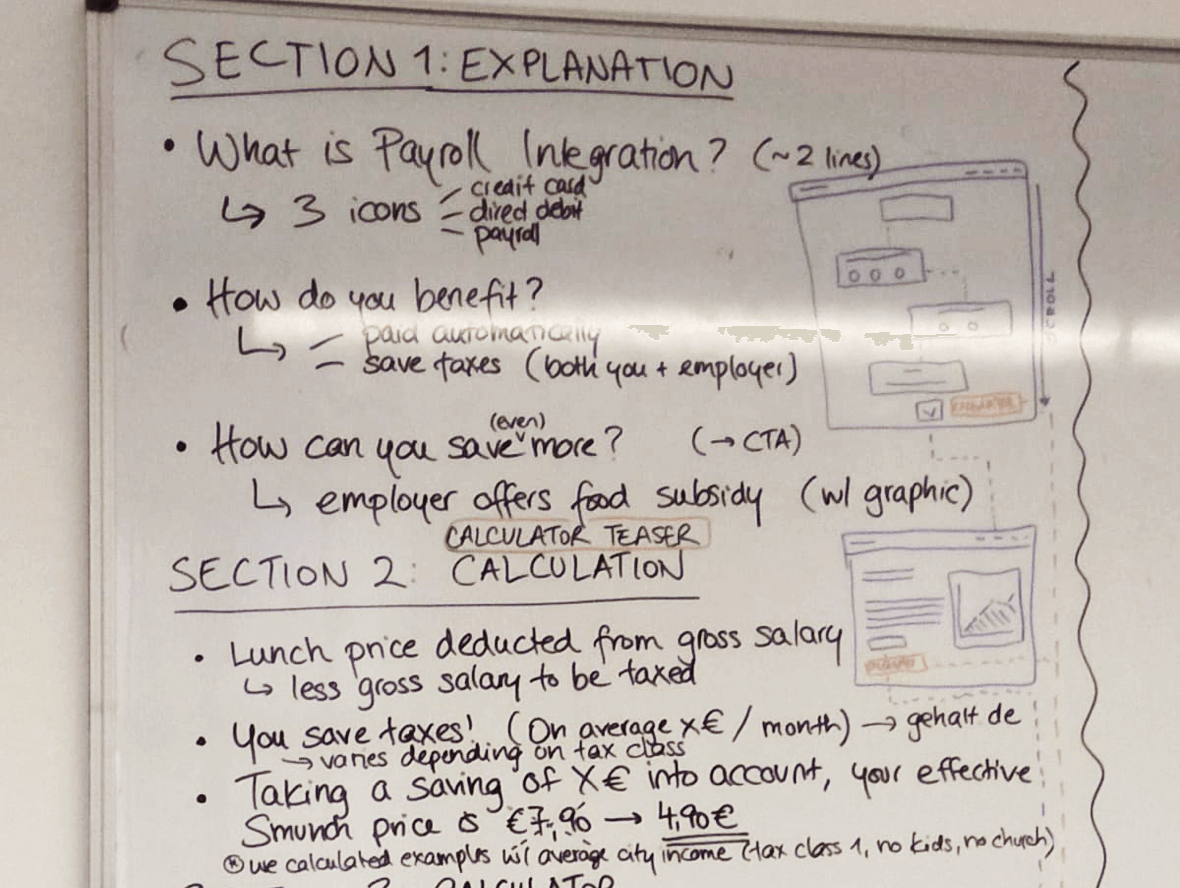 SECTION 1: EXPLANATION
• What is Payroll Integration? (~2 lines)
↳ 3 icons – credit card
– direct debit
– payroll
• How do you benefit?
↳ – paid automatically
– save taxes (both you + employer)
(even)
• How can you save ˅ more? (→ CTA)
↳ employer offers food subsidy (w/ graphic)
CALCULATOR TEASER
SECTION 2: CALCULATION
• Lunch price deducted from gross salary
↳ less gross salary to be taxed
• You save taxes! (On average x€ / month) → gehalt de
→ varies depending on tax class
• Taking a saving of X€ into account, your effective
Smunch price is €7,90 → 4,90€
* we calculated examples w/ average city income (tax class 1, no kids, no church)
CALCULATOR
SCROLL